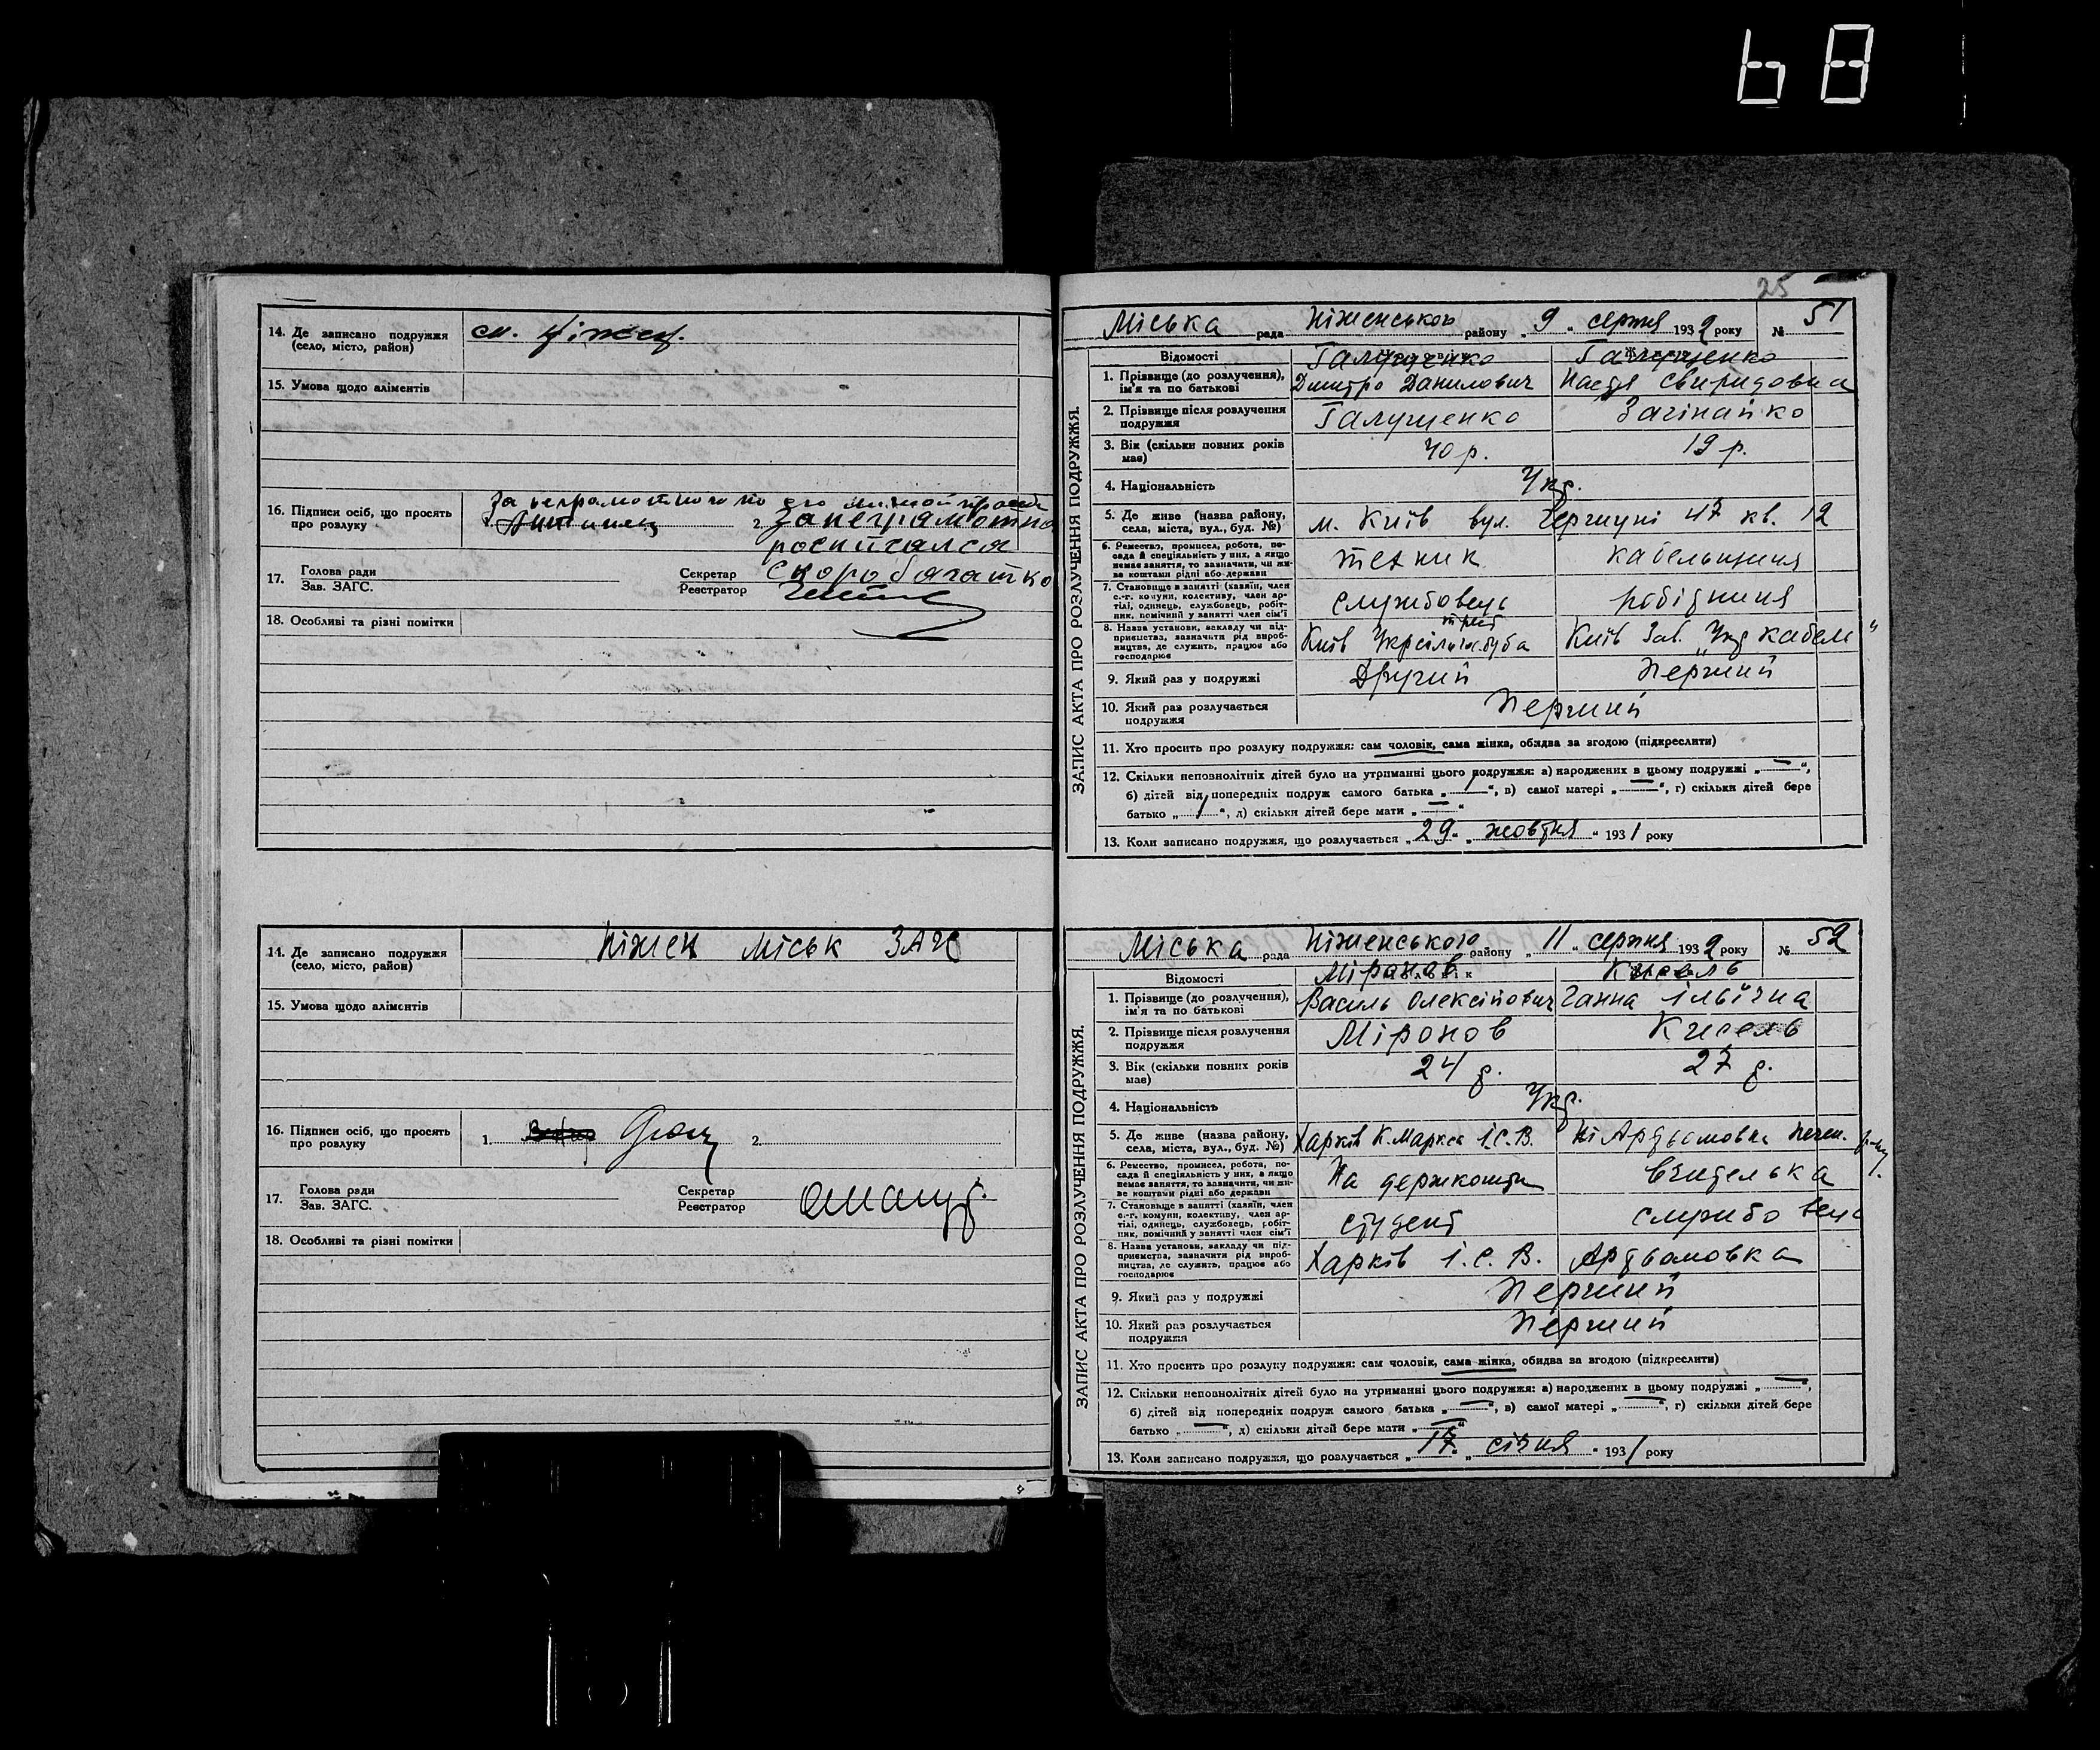 68
14. Де записано подружжя (село, місто, район) м. Ніжен.
15. Умова щодо аліментів
16. Підписи осіб, що просять про розлуку
За неграмотного по его личной просьбе
2. За неграмотную
росписался
Скоробагатко
17. Голова ради
Зав. ЗАГС.
Секретар
Реєстратор
18. Особливі та різні помітки
14. Де записано подружжя (село, місто, район) Ніжен міськ ЗАГС
15. Умова щодо аліментів
16. Підписи осіб, що просять про розлуку 1. 2.
17. Голова ради
Зав. ЗАГС.
Секретар
Реєстратор
18. Особливі та різні помітки
25
Міська рада Ніженського району „ 9 “ серпня 1932 року № 51
ЗАПИС АКТА ПРО РОЗЛУЧЕННЯ ПОДРУЖЖЯ.
Відомості Галущенко Галущенко
1. Прізвище (до розлучення), ім'я та по батькові Дмитро Данилович Настя Свиридовна
2. Прізвище після розлучення подружжя Галущенко Зачінайко
3. Вік (скільки повних років має) 40 р. 19 р.
4. Національність Укр.
5. Де живе (назва району, села, міста, вул., буд. №) м. Київ вул. 47 кв. 12
6. Ремество, промисел, робота, посада й спеціяльність у них, а якщо немає заняття, то зазначити, чи живе коштами рідні або держави технік кабельщиця
7. Становище в занятті (хазяїн, член с.-г. комуни, колективу, член артілі, одинець, службовець, робітник, помічний у занятті член сім'ї службовець робітниця
8. Назва установи, закладу чи підприємства, зазначити рід виробництва, де служить, працює або господарює Київ трест Київ Зав. „Укркабель“
9. Який раз у подружжі Другий Перший
10. Який раз розлучається подружжя Перший
11. Хто просить про розлуку подружжя: сам чоловік, сама жінка, обидва за згодою (підкреслити)
12. Скільки неповнолітніх дітей було на утриманні цього подружжя: а) народжених в цьому подружжі „ — “,
б) дітей від попередніх подруж самого батька „ 1 “, в) самої матері „ — “, г) скільки дітей бере
батько „ 1 “, д) скільки дітей бере мати „ — “
13. Коли записано подружжя, що розлучається „ 29 “ „ жовтня “ 1931 року
Міська рада Ніженського району „ 11 “ серпня 1932 року № 52
ЗАПИС АКТА ПРО РОЗЛУЧЕННЯ ПОДРУЖЖЯ.
Відомості Міронов Кисель
1. Прізвище (до розлучення), ім'я та по батькові Василь Олексійович Ганна Ільїчна
2. Прізвище після розлучення подружжя Міронов Кисель
3. Вік (скільки повних років має) 24 р. 27 р.
4. Національність Укр.
5. Де живе (назва району, села, міста, вул., буд. №) Харків К. Маркса І.С.В. Артьомовка
6. Ремество, промисел, робота, посада й спеціяльність у них, а якщо немає заняття, то зазначити, чи живе коштами рідні або держави На держкошти вчителька
7. Становище в занятті (хазяїн, член с.-г. комуни, колективу, член артілі, одинець, службовець, робітник, помічний у занятті член сім'ї студент службовець
8. Назва установи, закладу чи підприємства, зазначити рід виробництва, де служить, працює або господарює Харків І.С.В. Артьомовка
9. Який раз у подружжі Перший
10. Який раз розлучається подружжя Перший
11. Хто просить про розлуку подружжя: сам чоловік, сама жінка, обидва за згодою (підкреслити)
12. Скільки неповнолітніх дітей було на утриманні цього подружжя: а) народжених в цьому подружжі „ — “,
б) дітей від попередніх подруж самого батька „ — “, в) самої матері „ — “, г) скільки дітей бере
батько „ — “, д) скільки дітей бере мати „ — “
13. Коли записано подружжя, що розлучається „ 17 “ „ січня “ 1931 року